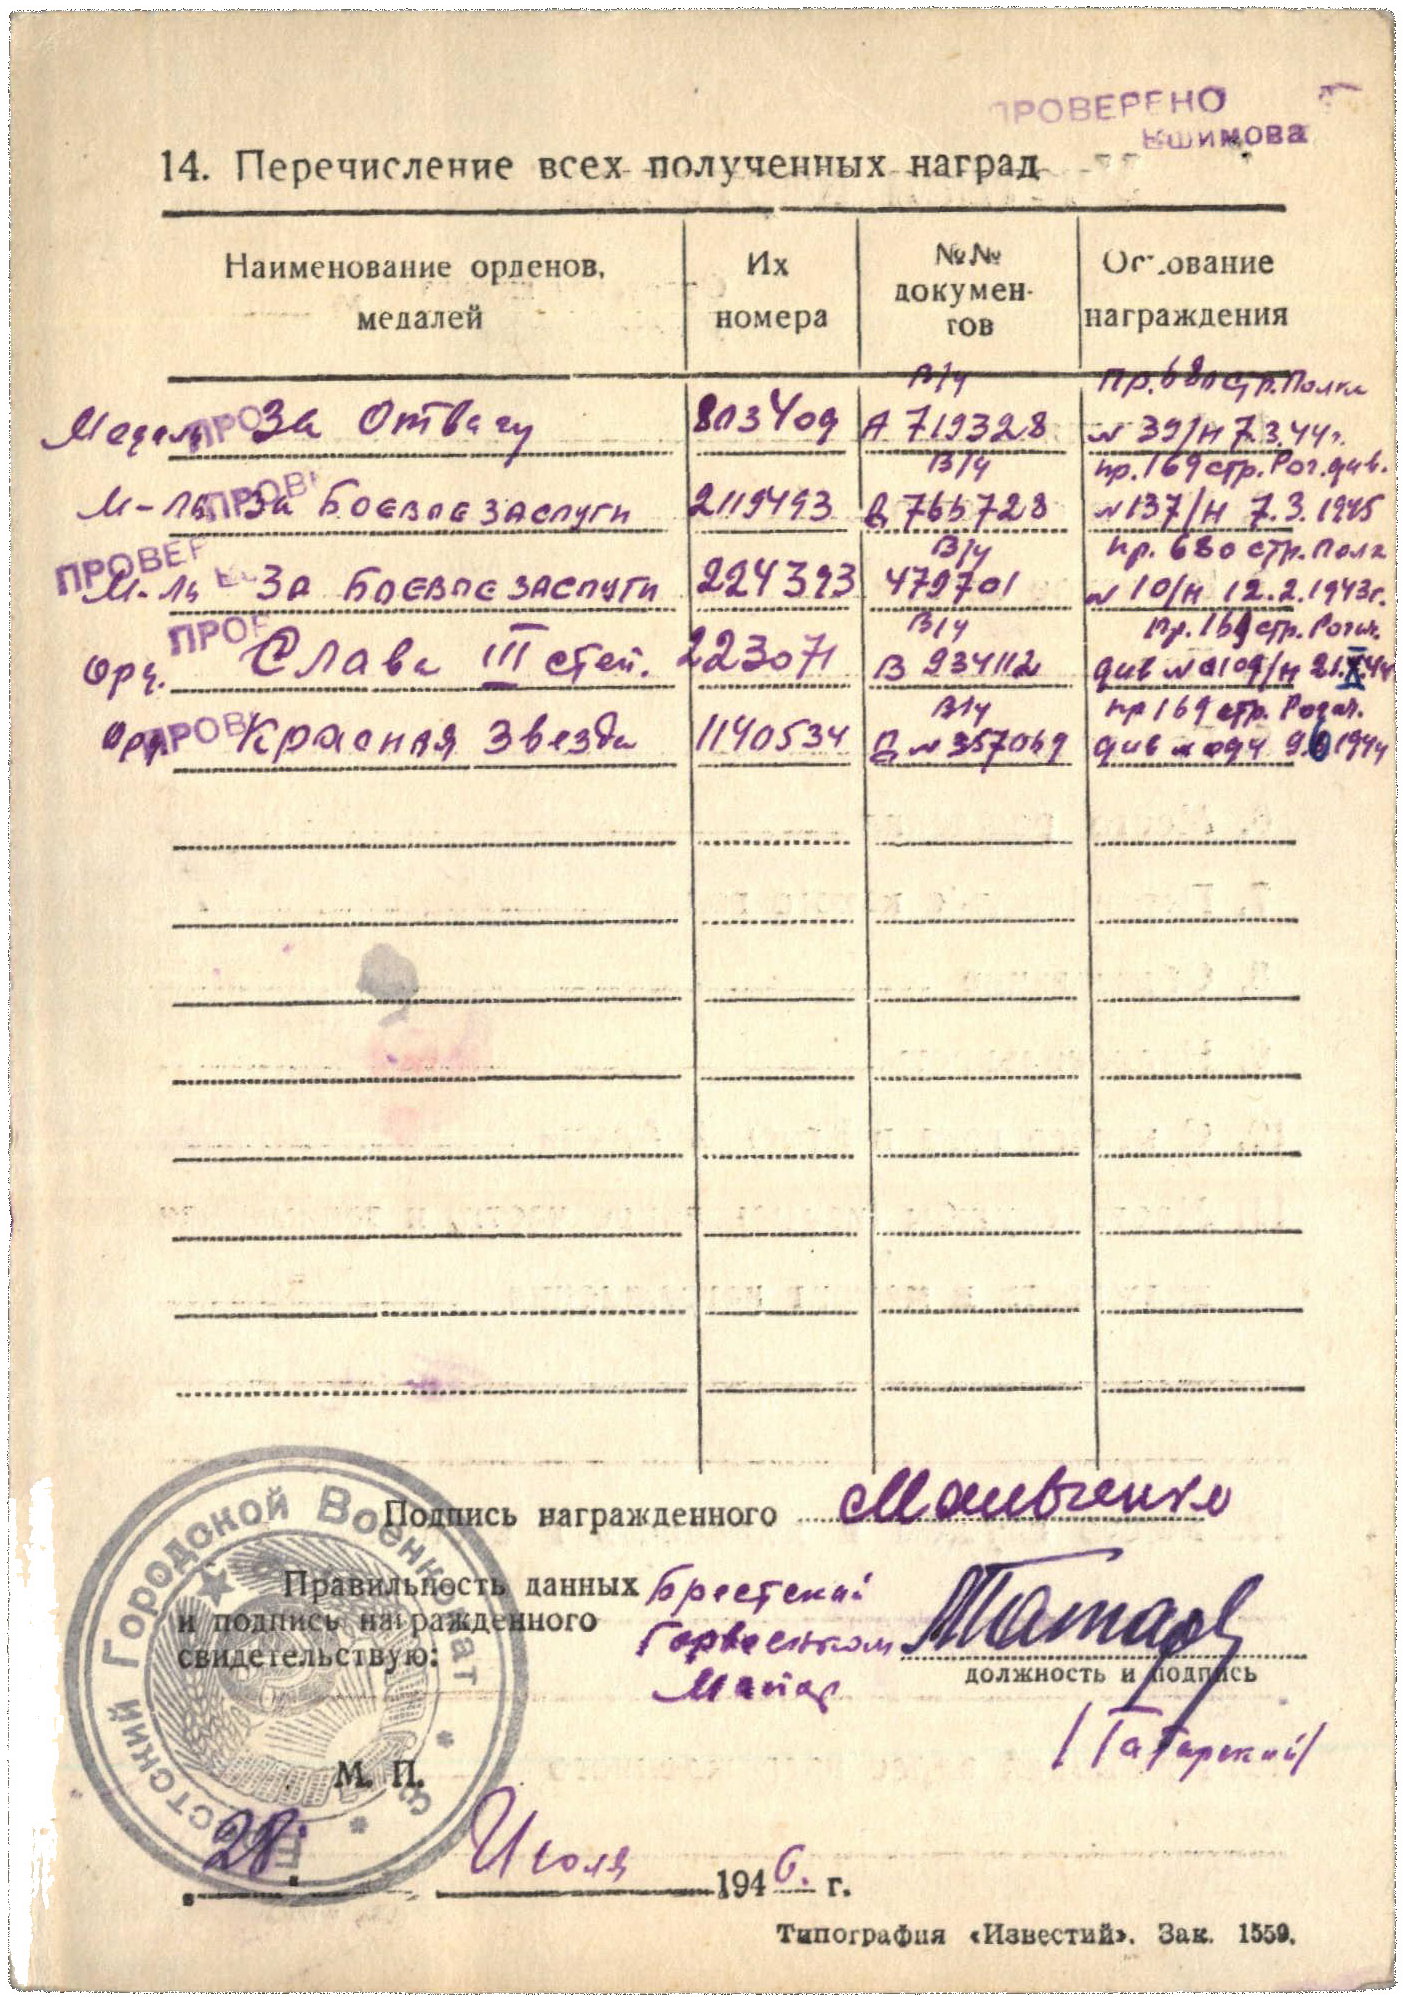 ПРОВЕРЕНО
Ешимова
14. Перечисление всех полученных наград
Наименование орденов, медалей
Их номера
№№ документов
Основание награждения
В/ч Пр. 680 стр. Полка
Медаль За Отвагу 803409 А 719328 № 39/н 7.3.44 г.
В/ч пр. 169 стр. Рог. див.
М-ль За Боевые заслуги 2119493 765728 № 137/н 7.3.1945
В/ч пр. 680 стр. Полк
М-ль За Боевые заслуги 224393 479701 № 10/н 12.2.1943 г.
В/ч Пр. 169 стр. Рогач.
Орд. Слава III степ. 223071 В 934112 див № 0109/н 21.X.44
В/ч пр 169 стр. Рогач.
Орд. Красная Звезда 1140534 № 357069 див № 094 9.6 1944
ПРО
ПРОВ
ПРОВЕР
ПРОВ
ПРОВ
Подпись награжденного
Правильность данных
и подпись награжденного
свидетельствую:
Брестский
Горвоенком
Майор
должность и подпись
/Татарский/
Брестский Городской Военкомат
М. П.
28 Июля 1946. г.
Типография «Известий». Зак. 1559.